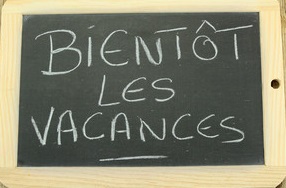 BIENTÔT
LES
VACANCES